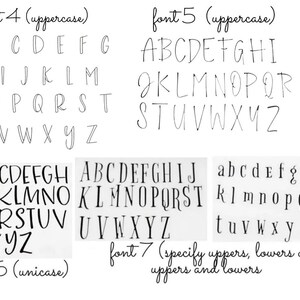 font 4 (uppercase)
C D E F G
I J K L M
P Q R S T
V W X Y Z
font 5 (uppercase)
ABCDEFGHI
JKLMNOPQR
STUVWXYZ
CDEFGH
KLMNO
RSTUV
YZ
5 (unicase)
ABCDEFGHIJ
KLMNOPQRST
UVWXYZ
a b c d e f g
k l m n o p
t u v w x y
font 7 (specify uppers, lowers
uppers and lowers